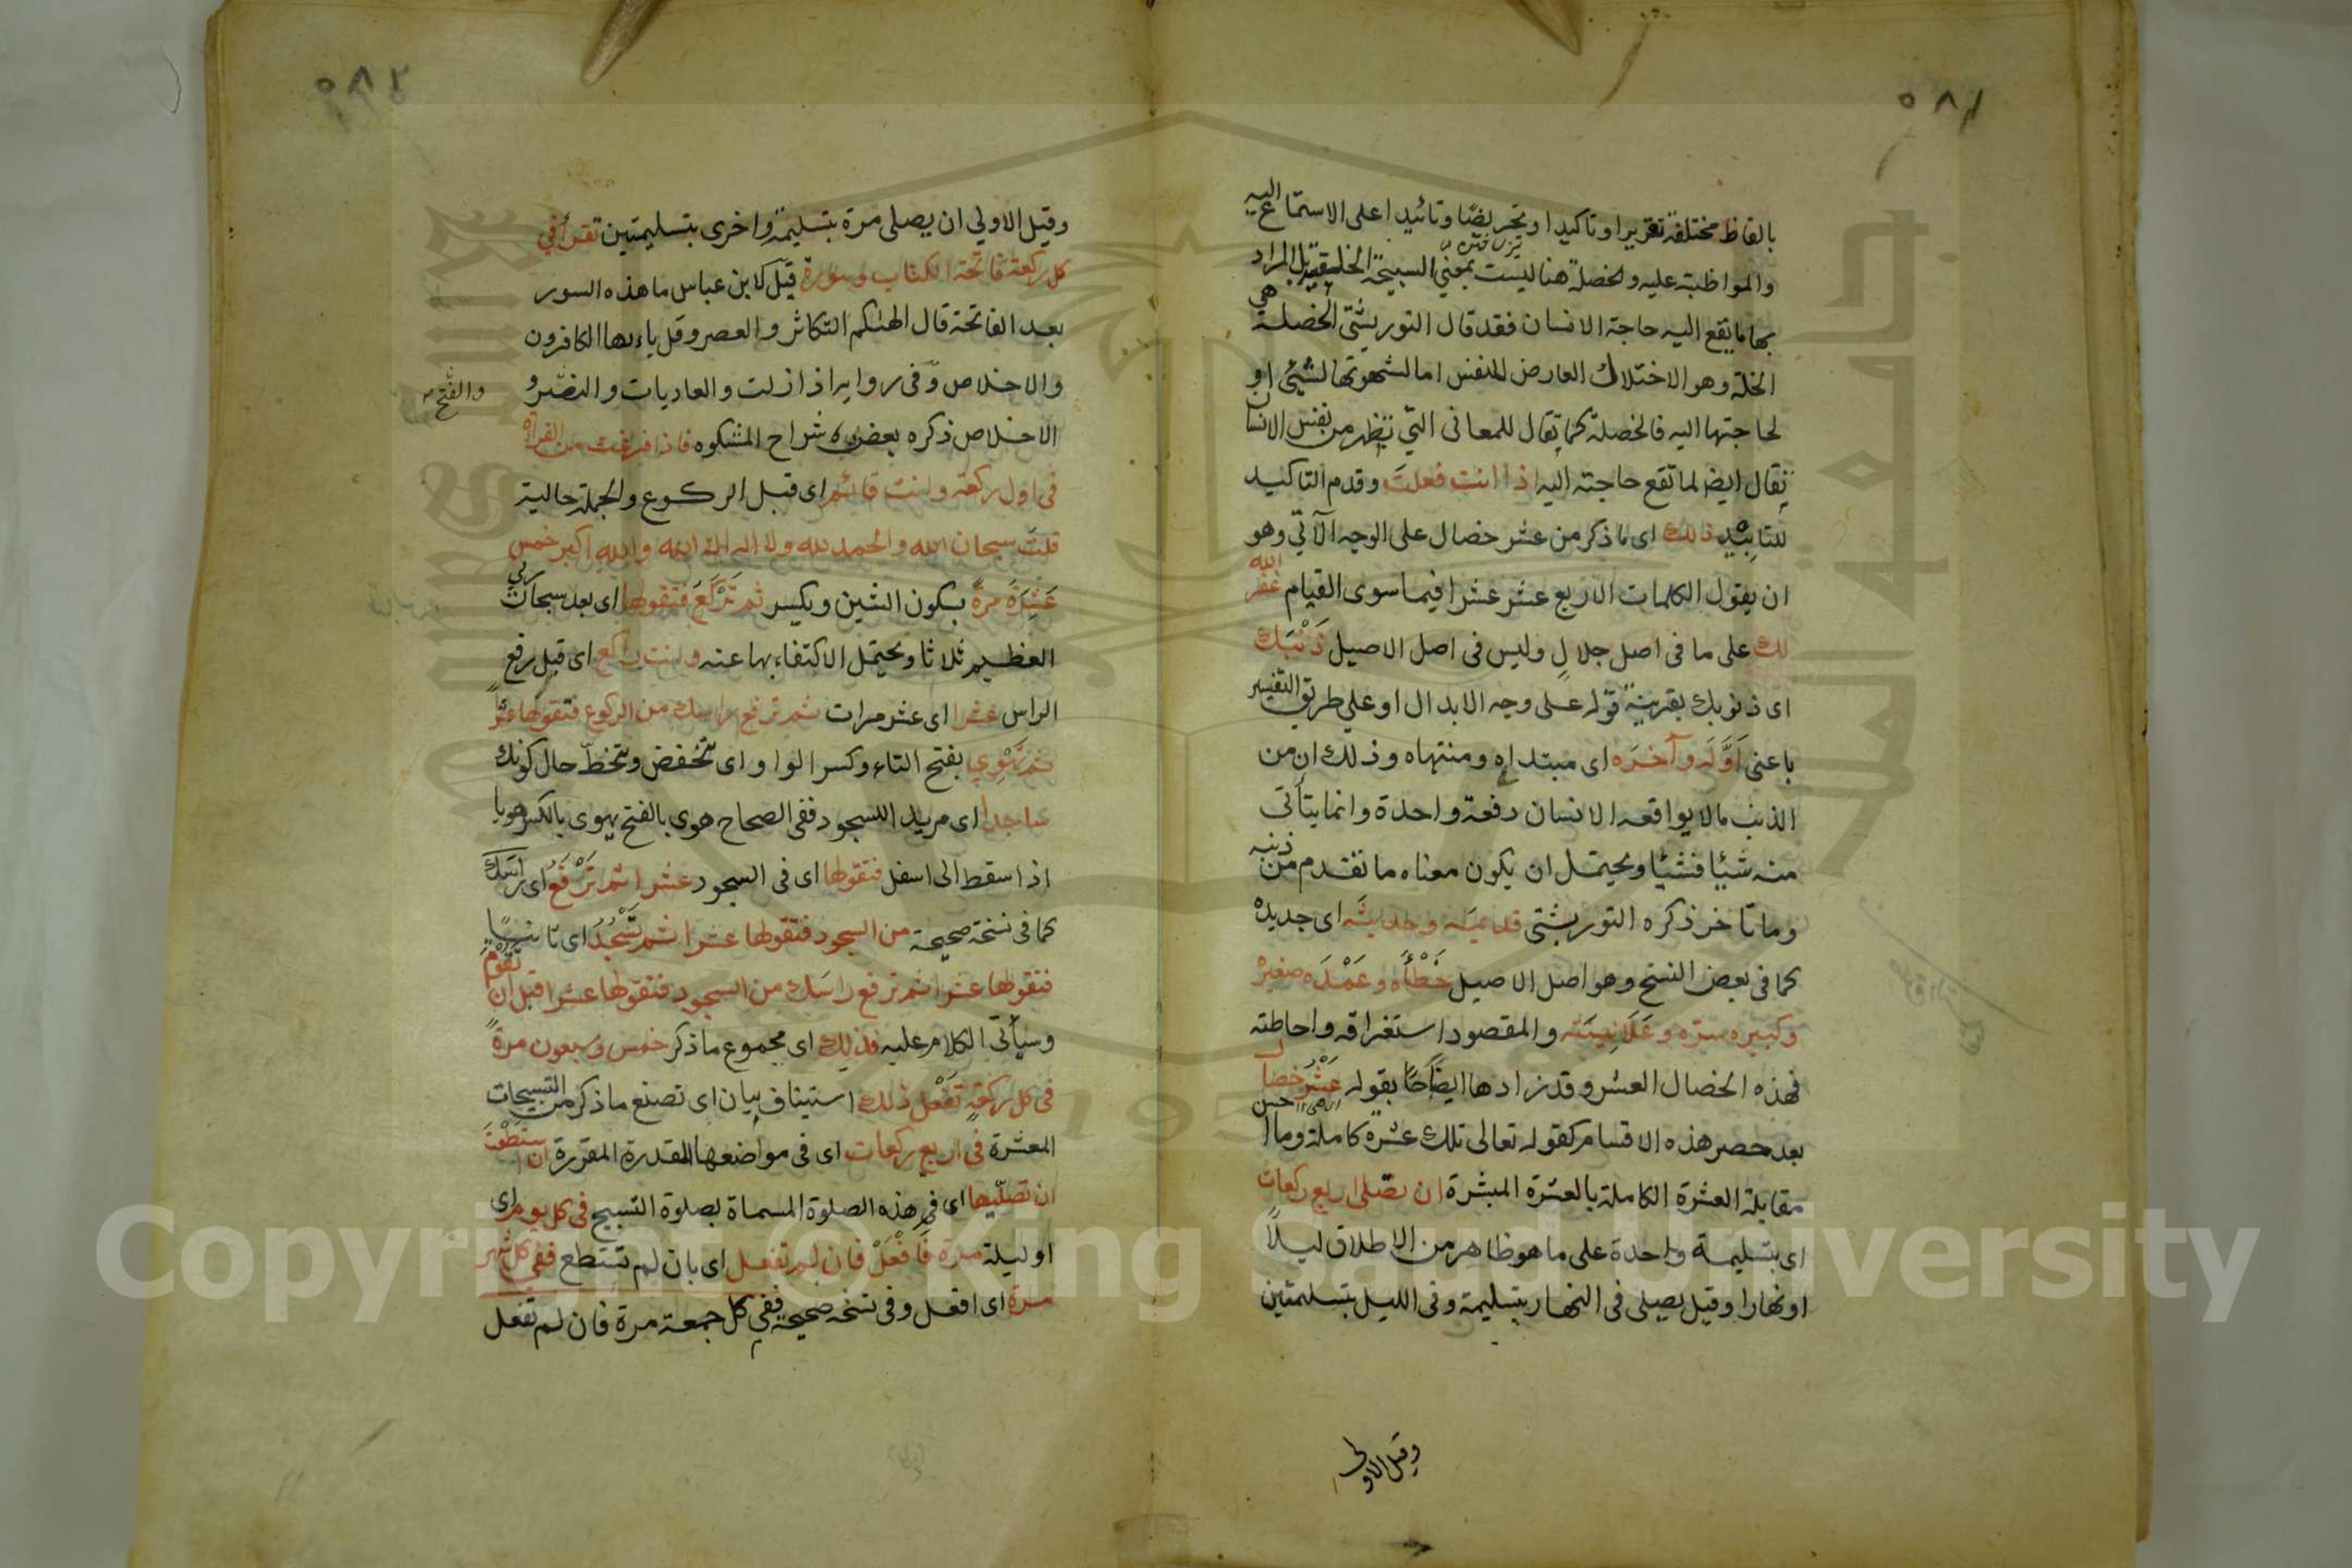 ٥٨١
بالفاظ مختلفة تقريرا وتاكيدا وتحريضا وتائيدا على الاستماع اليه
والمواظبة عليه والخصلة هنا ليست بمعني السبيحة الخلقية بل المراد
بها ما يقع اليه حاجة الانسان فقد قال التوربشتي الخصلة هي
الخلة وهو الاختلال العارض للنفس اما لشهوتها لشيئ او
لحاجتها اليه فالخصلة كما تقال للمعاني التي تظهر من نفس الانسان
يقال ايضا لما تقع حاجته اليه اذا انت فعلت وقدم التاكيد
للتاييد ذلك اى ما ذكر من عشر خصال على الوجه الآتي وهو
ان يقول الكلمات الاربع عشر عشرا فيما سوى القيام غفر الله
لك على ما في اصل جلال وليس في اصل الاصيل ذَنْبَك
اى ذنوبك بقرينة قوله على وجه الابدال او على طريق التفسير
باعني اَوَّلَه وآخرَه اى مبتداه ومنتهاه وذلك ان من
الذنب ما لا يواقعه الانسان دفعة واحدة وانما يتأتى
منه شيئا فشيئا ويحتمل ان يكون معناه ما تقدم من ذنبه
وما تاخر ذكره التوربشتي قديمَه وحديثَه اى جديده
كما في بعض النسخ وهو اصل الاصيل خَطْأَه وعَمْدَه صغيره
وكبيره سرّه وعَلَانِيَتَه والمقصود استغراقه واحاطته
فهذه الخصال العشر وقد زادها ايضاحًا بقوله عَشْرَ خصال
بعد حصر هذه الاقسام كقوله تعالى تلك عشرة كاملة وما احسن
مقابلة العشرة الكاملة بالعشرة المبشرة ان تصلى اربع ركعات
اى بتسليمة واحدة على ما هو ظاهر من الاطلاق ليلاً
او نهارا وقيل يصلى في النهار بتسليمة وفي الليل بتسليمتين
وقيل الاولى
٥٨٢
وقيل الاولي ان يصلى مرة بتسليمة واخرى بتسليمتين تقرأ في
كل ركعة فاتحة الكتاب وسورة قيل لابن عباس ما هذه السور
بعد الفاتحة قال الهٰىكم التكاثر والعصر وقل ياءيها الكافرون
والاخلاص وفي رواية اذا زلزلت والعاديات والنصر و
والفتح
الاخلاص ذكره بعض شراح المشكوه فاذا فرغت من القراة
في اول ركعة وانت قائم اى قبل الركوع والجملة حالية
قلتَ سبحان الله والحمد لله ولا اله الا الله والله اكبر خمس
عَشِرَةَ مرةً بسكون الشين ويكسر ثم تَرْكَعُ فتقولها اى بعد سبحان ربي
العظيم ثلاثا ويحتمل الاكتفاء بها عنه وانت راكع اى قبل رفع
الراس عشرا اى عشر مرات ثم ترفع راسك من الركوع فتقولها عشراً
ثم تَهْوِي بفتح التاء وكسر الواو اى تنخفض وتنحطّ حال كونك
ساجدا اى مريدا للسجود ففي الصحاح هوى بالفتح يهوى بالكسر هويا
اذا سقط الى اسفل فتقولها اى في السجود عشرا ثم تَرْفَعُ اى راسَك
كما في نسخة صحيحة من السجود فتقولها عشرا ثم تَسْجُدُ اى ثانيًا
فتقولها عشرا ثم ترفع راسَك من السجود فتقولها عشرا قبل ان تقوم
وسيأتي الكلام عليه فذلك اى مجموع ما ذكر خمس وسبعون مرةً
في كل ركعةٍ تَفْعَل ذلك استيناف بيان اى تصنع ما ذكر من التسبيحات
المعشرة في اربع ركعات اى في مواضعها المقدرة المقررة ان استَطَعْتَ
ان تصلّيها اى هذه الصلوة المسماة بصلوة التسبيح في كل يوم اى
او ليلة مرة فَافْعَلْ فان لم تفعل اى بان لم تستطع ففي كل شهر
مرة اى افعل وفي نسخة صحيحة ففي كل جمعة مرة فان لم تفعل
Copyright © King Saud University